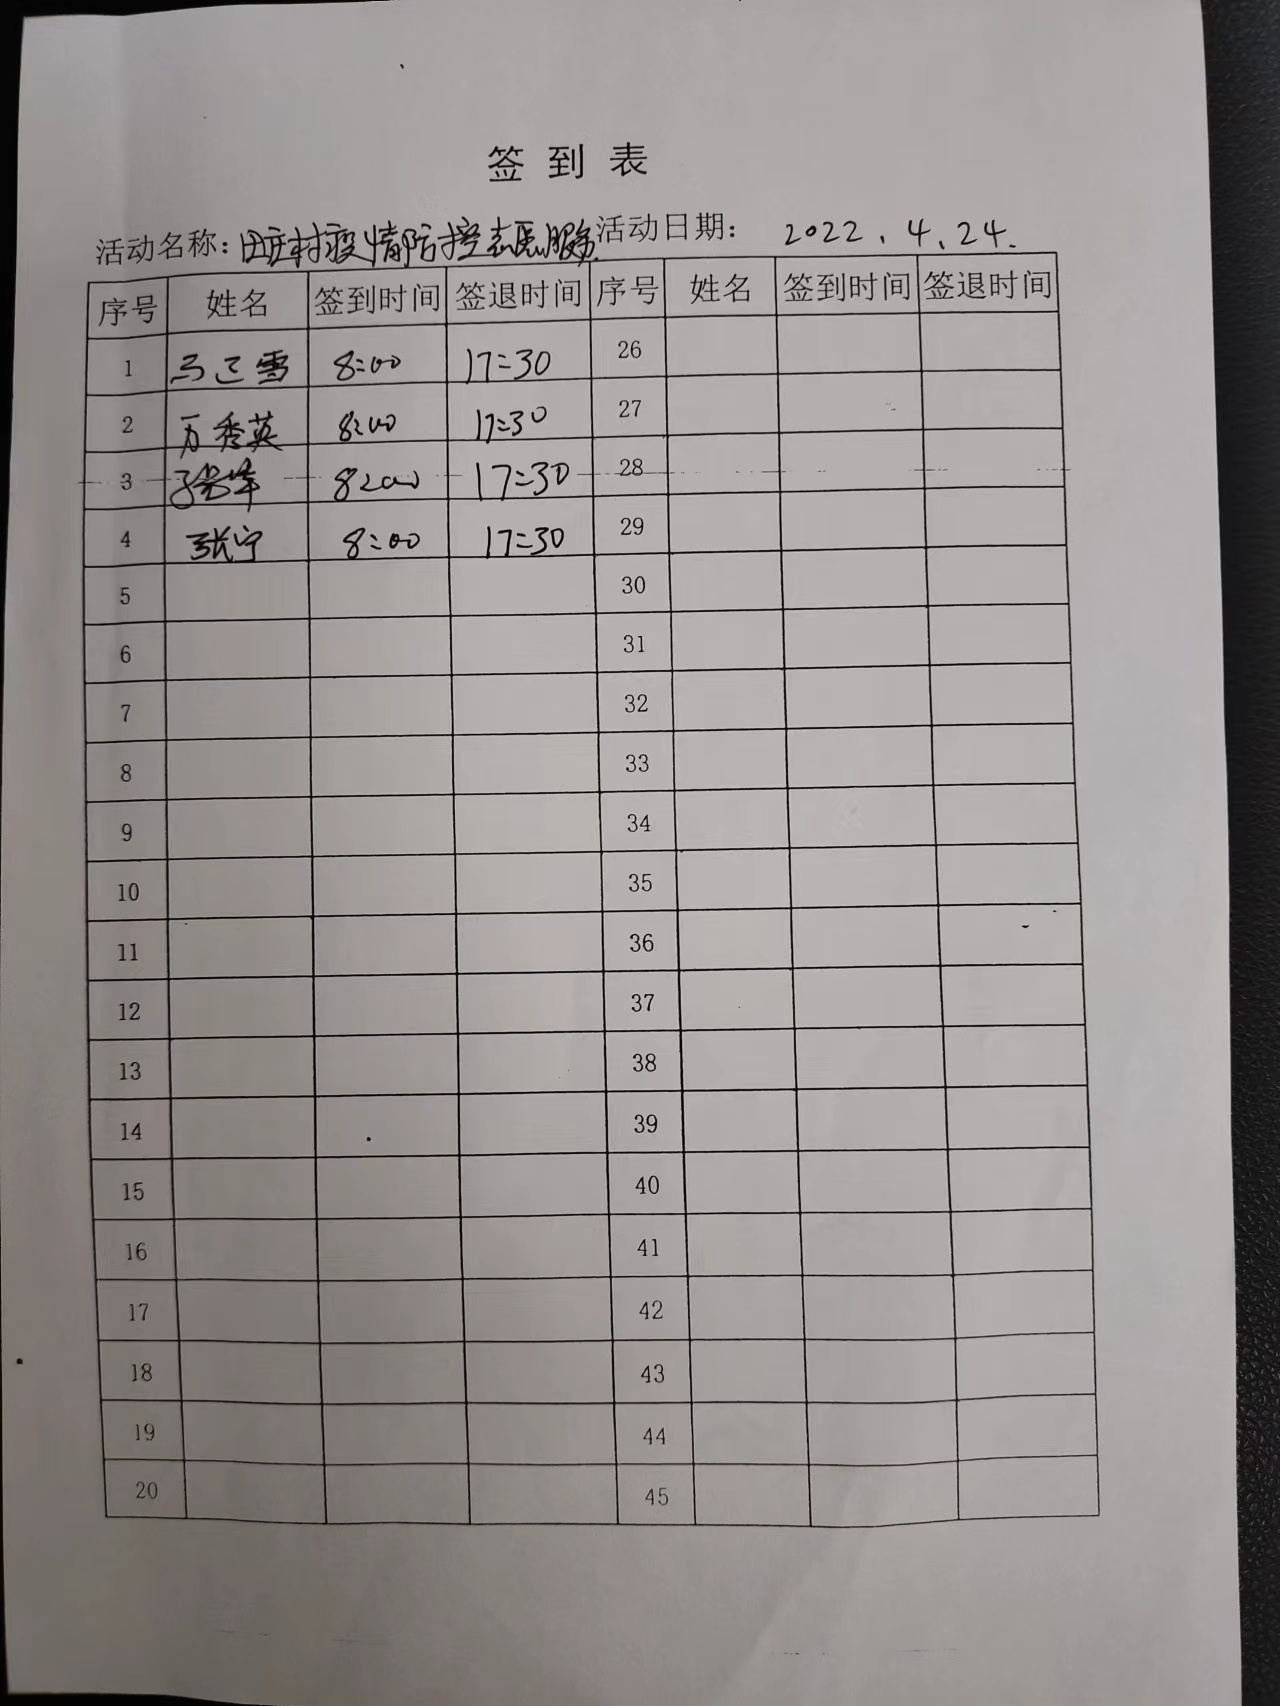 签到表
活动名称：田庄村疫情防控志愿服务 活动日期： 2022.4.24.
序号 姓名 签到时间 签退时间 序号 姓名 签到时间 签退时间
1 马 雪 8:00 17:30 26
2 万秀英 8:00 17:30 27
3 8:00 17:30 28
4 张宁 8:00 17:30 29
5 30
6 31
7 32
8 33
9 34
10 35
11 36
12 37
13 38
14 39
15 40
16 41
17 42
18 43
19 44
20 45